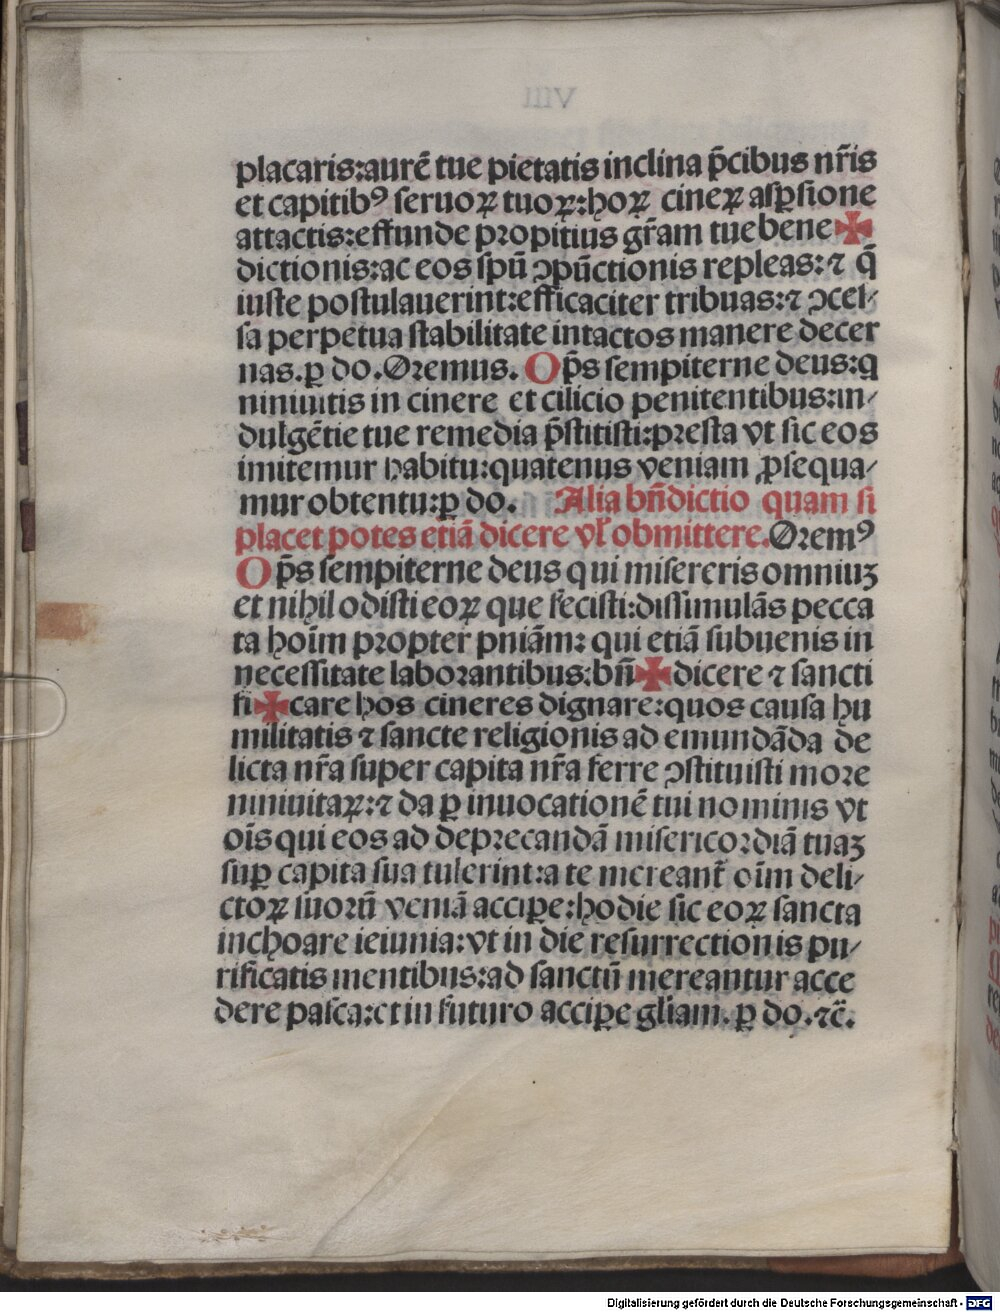 placaris:aurē tue pietatis inclina p̄cibus nr̄is
et capitibꝯ seruoꝝ tuoꝝ:hoꝝ cineꝝ aspsione
attactis:effunde propitius gr̄am tue bene✠
dictionis:ac eos spū ꝯpūctionis repleas:⁊ q̄
iuste postulauerint:efficaciter tribuas:⁊ ꝯcel⸗
sa perpetua stabilitate intactos manere decer
nas.ꝑ do.Oremus. Op̄s sempiterne deus:q
niniuitis in cinere et cilicio penitentibus:in⸗
dulgētie tue remedia p̄stitisti:presta vt sic eos
imitemur habitu:quatenus veniam ꝓsequa⸗
mur obtentu:ꝑ do. Alia bn̄dictio quam si
placet potes etiā dicere vl̕ obmittere.Oremꝯ
Op̄s sempiterne deus qui misereris omniuꝫ
et nihil odisti eoꝝ que fecisti:dissimulās pecca
ta hoīm propter pniām: qui etiā subuenis in
necessitate laborantibus:bn̄✠dicere ⁊ sancti
fi✠care hos cineres dignare:quos causa hu
militatis ⁊ sancte religionis ad emundāda de
licta nr̄a super capita nr̄a ferre ꝯstituisti more
niniuitaꝝ:⁊ da ꝑ inuocationē tui nominis vt
oīs qui eos ad deprecandā misericordiā tuaꝫ
suꝑ capita sua tulerint:a te mereant̄ oīm deli⸗
ctoꝝ suorū veniā acciꝑe:hodie sic eoꝝ sancta
inchoare ieiunia:vt in die resurrectionis pu⸗
rificatis mentibus:ad sanctū mereantur acce
dere pasca:et in futuro acciꝑe gl̄iam.ꝑ do.⁊c̄.
Digitalisierung gefördert durch die Deutsche Forschungsgemeinschaft - DFG